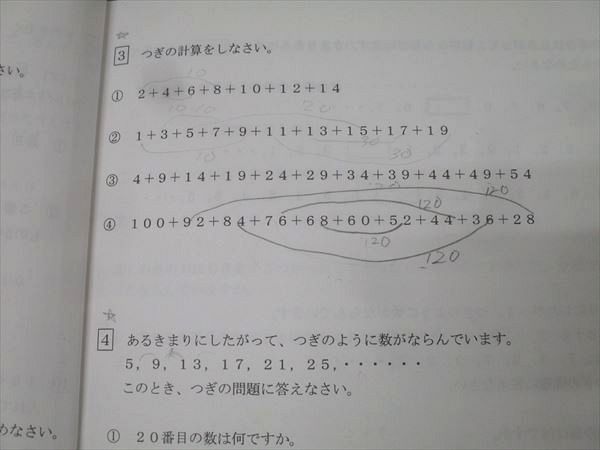 さい。
3 つぎの計算をしなさい。
10
① 2+4+6+8+10+12+14
② 1+3+5+7+9+11+13+15+17+19
10 30 30
③ 4+9+14+19+24+29+34+39+44+49+54
120
④ 100+92+84+76+68+60+52+44+36+28
120
120
120
4 あるきまりにしたがって、つぎのように数がならんでいます。
5, 9, 13, 17, 21, 25, ・・・・・・
このとき、つぎの問題に答えなさい。
めなさい。
① 20番目の数は何ですか。